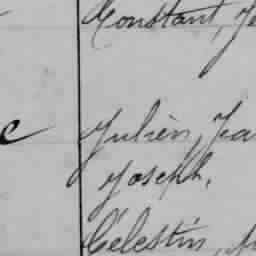 Constant, Je
Julien, Jea
Joseph.
Célestin,